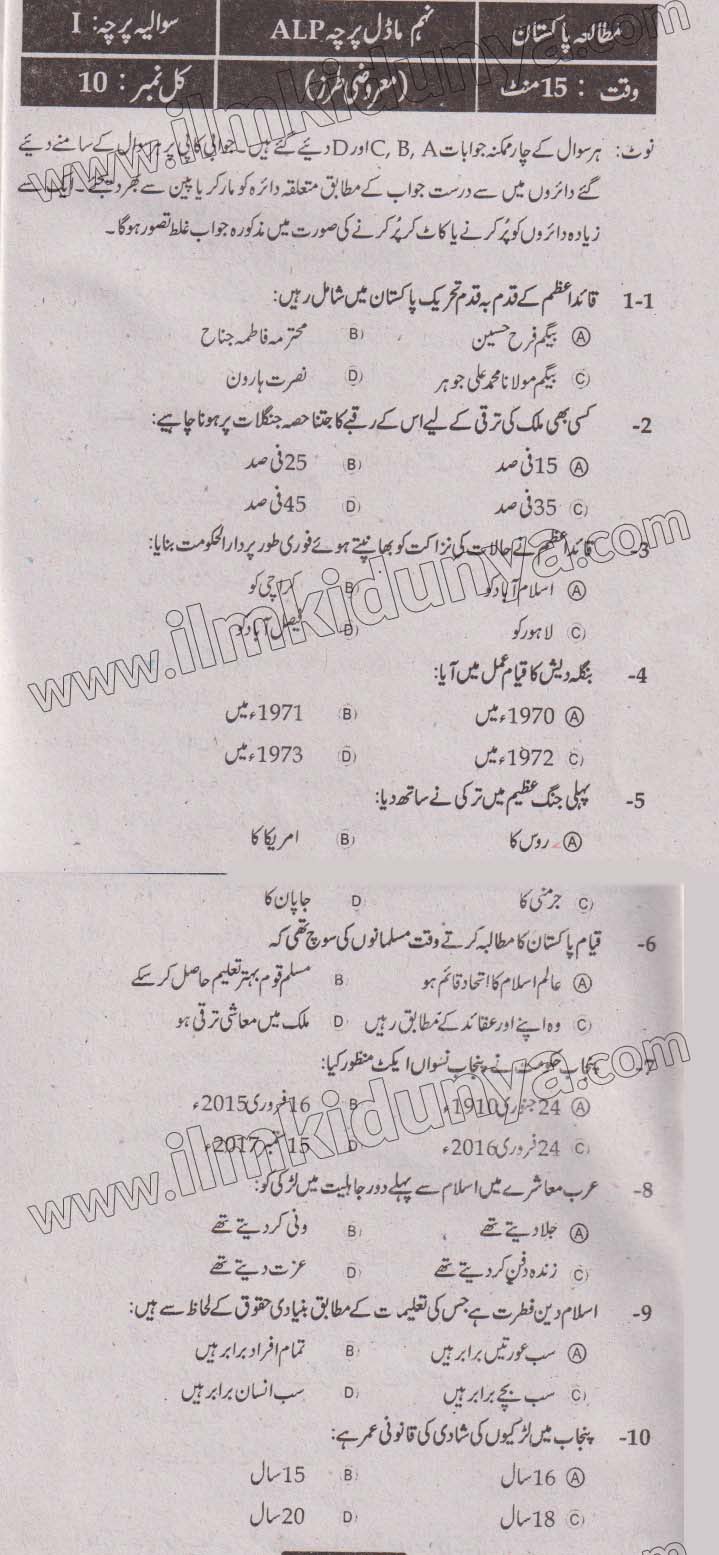 مطالعہ پاکستان نہم ماڈل پرچہ ALP سوالیہ پرچہ: I
وقت : 15 منٹ (معروضی طرز) کل نمبر : 10
نوٹ: ہر سوال کے چار ممکنہ جوابات C, B, A اور D دیئے گئے ہیں۔ جوابی کاپی پر ہر سوال کے سامنے دیئے
گئے دائروں میں سے درست جواب کے مطابق متعلقہ دائرہ کو مارکر یا پین سے بھر دیجئے۔ ایک سے
زیادہ دائروں کو پُر کرنے یا کاٹ کر پُر کرنے کی صورت میں مذکورہ جواب غلط تصور ہوگا۔
1-1 قائداعظم کے قدم بہ قدم تحریک پاکستان میں شامل رہیں:
(A) بیگم فرح حسین (B) محترمہ فاطمہ جناح
(C) بیگم مولانا محمد علی جوہر (D) نصرت ہارون
2- کسی بھی ملک کی ترقی کے لیے اس کے رقبے کا جتنا حصہ جنگلات پر ہونا چاہیے:
(A) 15 فی صد (B) 25 فی صد
(C) 35 فی صد (D) 45 فی صد
3- قائداعظم نے حالات کی نزاکت کو بھانپتے ہوئے فوری طور پر دارالحکومت بنایا:
(A) اسلام آباد کو (B) کراچی کو
(C) لاہور کو (D) فیصل آباد کو
4- بنگلہ دیش کا قیام عمل میں آیا:
(A) 1970ء میں (B) 1971ء میں
(C) 1972ء میں (D) 1973ء میں
5- پہلی جنگ عظیم میں ترکی نے ساتھ دیا:
(A) روس کا (B) امریکا کا
(C) جرمنی کا D جاپان کا
6- قیام پاکستان کا مطالبہ کرتے وقت مسلمانوں کی سوچ تھی کہ
(A) عالم اسلام کا اتحاد قائم ہو B مسلم قوم بہتر تعلیم حاصل کر سکے
(C) وہ اپنے اور عقائد کے مطابق رہیں D ملک میں معاشی ترقی ہو
7- پنجاب حکومت نے پنجاب نسواں ایکٹ منظور کیا:
(A) 24 جنوری 1910ء B 16 فروری 2015ء
(C) 24 فروری 2016ء D 15 ستمبر 2017ء
8- عرب معاشرے میں اسلام سے پہلے دور جاہلیت میں لڑکی کو:
(A) جلا دیتے تھے (B) ونی کر دیتے تھے
(C) زندہ دفن کر دیتے تھے (D) عزت دیتے تھے
9- اسلام دین فطرت ہے جس کی تعلیمات کے مطابق بنیادی حقوق کے لحاظ سے ہیں:
(A) سب عورتیں برابر ہیں (B) تمام افراد برابر ہیں
(C) سب بچے برابر ہیں (D) سب انسان برابر ہیں
10- پنجاب میں لڑکیوں کی شادی کی قانونی عمر ہے:
(A) 16 سال (B) 15 سال
(C) 18 سال (D) 20 سال
www.ilmkidunya.com
www.ilmkidunya.com
www.ilmkidunya.com